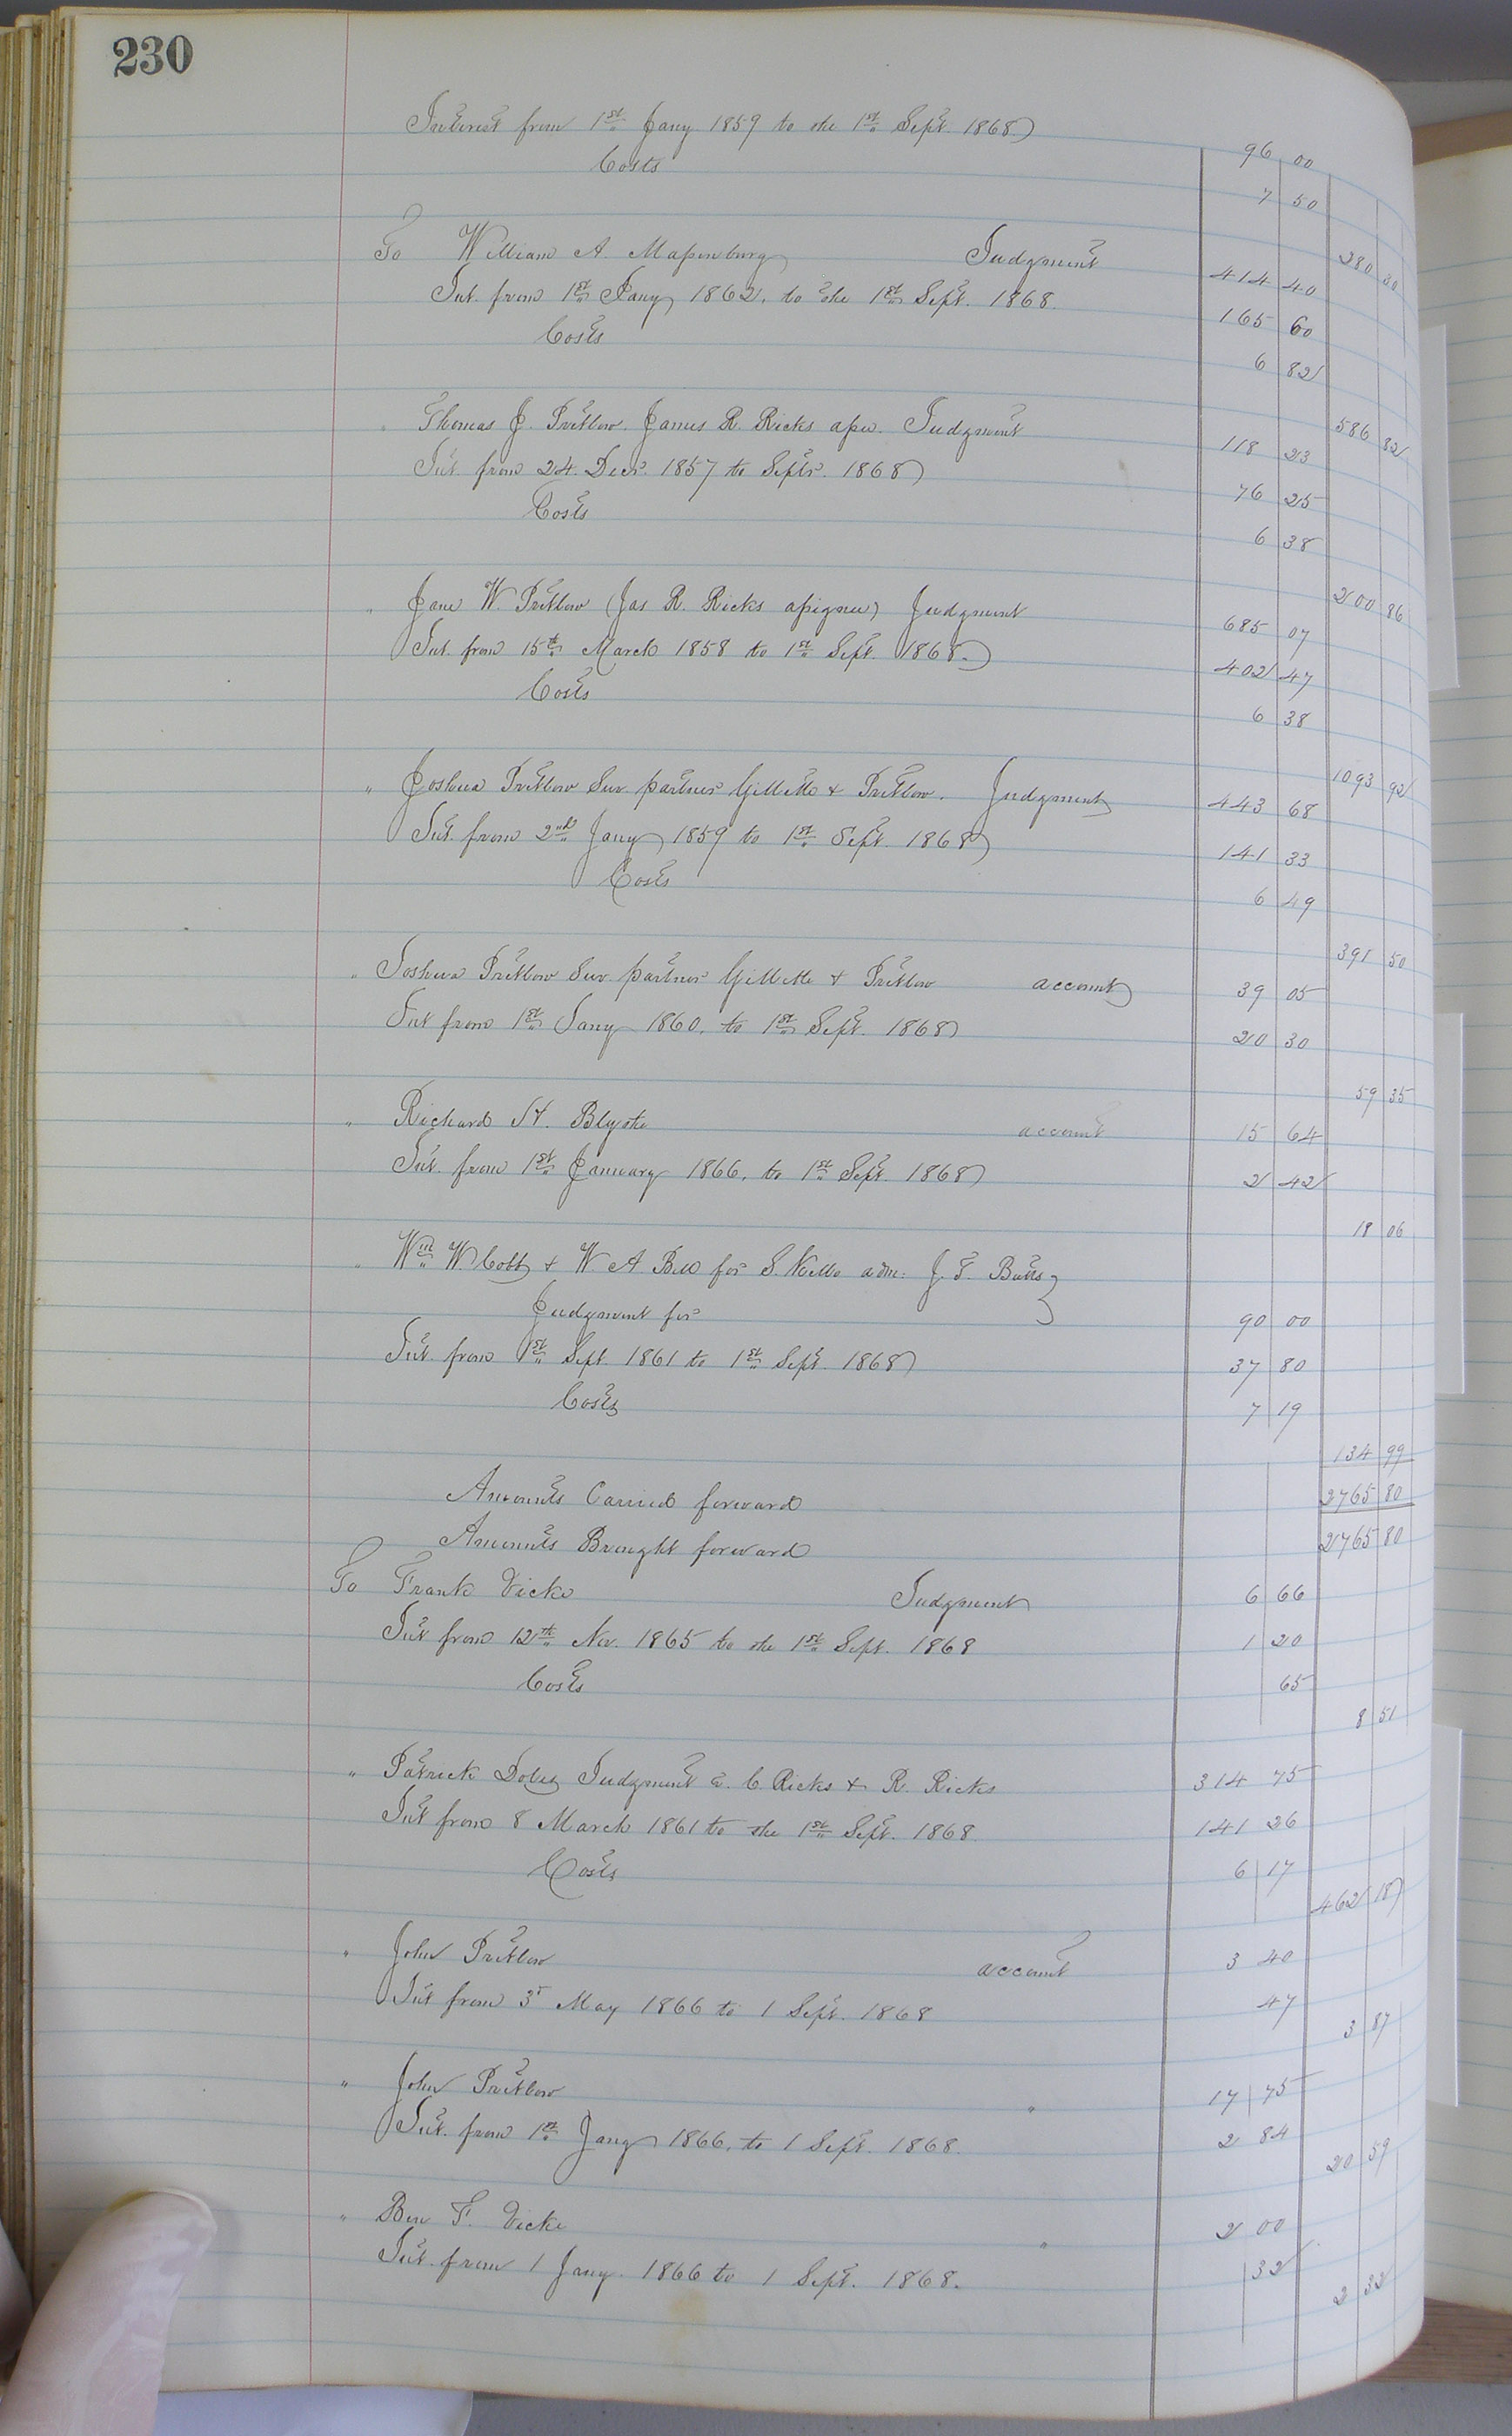 230
Interest from 1st Jany 1859 to the 1st Sept. 1868 96 00
Costs 7 50
280 30
To William A. Massenburg Judgment 414 40
Int. from 1st Jany 1862, to the 1st Sept. 1868. 165 60
Costs 6 82
586 82
" Thomas J. Pretlow. James R. Ricks assee. Judgment 118 23
Int. from 24. Decr. 1857 to Septr. 1868 76 25
Costs 6 38
200 86
" Jane W. Pretlow (Jas R. Ricks assignee) Judgment 685 07
Int. from 15th March 1858 to 1st Sept. 1868. 402 47
Costs 6 38
1093 92
" Joshua Pretlow Sur. partner Gillette & Pretlow. Judgment 443 68
Int. from 2nd Jany 1859 to 1st Sept. 1868 141 33
Costs 6 49
391 50
" Joshua Pretlow Sur. partner Gillette & Pretlow account 39 05
Int from 1st Jany 1860. to 1st Sept. 1868 20 30
59 35
" Richard H. Blythe account 15 64
Int. from 1st January 1866, to 1st Sept. 1868 2 42
18 06
" Wm W. Cobb & W. A. Bell for S. Kello adm: J. T. Butts
Judgment for 90 00
Int. from 1st Sept. 1861 to 1st Sept. 1868 37 80
Costs 7 19
134 99
Amounts Carried forward 2765 80
Amounts Brought forward 2765 80
To Frank Vicke Judgment 6 66
Int from 12th Nov. 1865 to the 1st Sept. 1868 1 20
Costs 65
8 51
" Patrick Doles Judgment vs. C. Ricks & R. Ricks 314 75
Int from 8 March 1861 to the 1st Sept. 1868. 141 26
Costs 6 17
462 18
" John Pretlow account 3 40
Int from 3d May 1866 to 1 Sept. 1868 47
3 87
" John Pretlow " 17 75
Int. from 1st Jany 1866, to 1 Sept. 1868. 2 84
20 59
" Ben F. Vicke " 2 00
Int. from 1 Jany. 1866 to 1 Sept. 1868. 32
2 32